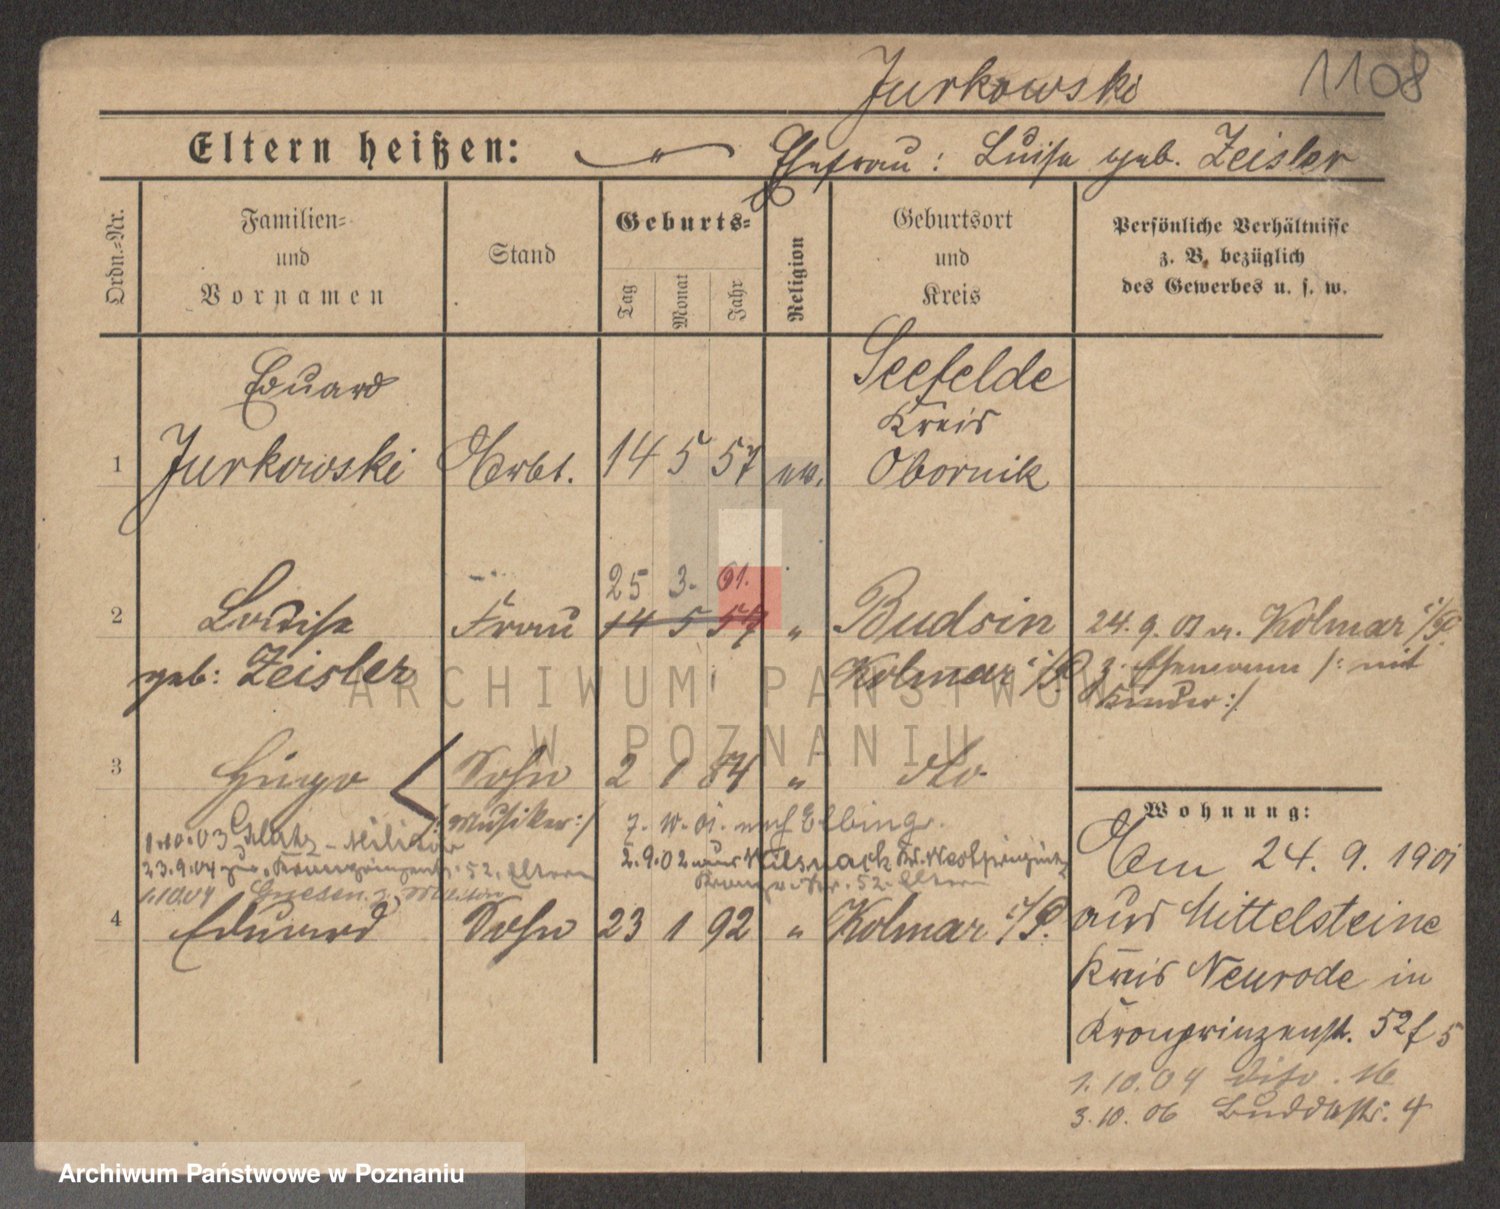 Jurkowski 1108
Eltern heißen: Ehefrau: Luise geb. Zeisler
Ordn.-Nr.
Familien-
und
Vornamen
Stand
Geburts-
Tag Monat Jahr
Religion
Geburtsort
und
Kreis
Persönliche Verhältnisse
z. B. bezüglich
des Gewerbes u. s. w.
Eduard Seefelde
Kreis
1 Jurkowski Arbt. 14 5 57 ev. Obornik
25 3. 61.
2 Louise Frau 14 5 57 " Budsin 24. 9. 01 v. Kolmar i/P.
geb: Zeisler Kolmar i/P. z. Ehemann /: mit
Kinder :/
3 Hugo Sohn 2 1 84 " dto.
/: Musiker :/ 7. 10. 01. nach Elbing.
1.10.03 Glatz - Militär
2.9.02 aus Wilsnack Kr. Westprignitz
23.9.04 zur. Kronprinzenst. 52. Eltern
Kronprinzstr. 52. Eltern
1.10.04 Gnesen z. Militär
4 Eduard Sohn 23 1 92 " Kolmar i/P.
Wohnung:
Am 24. 9. 1901
aus Mittelsteine
Kreis Neurode in
Kronprinzenst. 52 f 5
1.10.04 dito. 16
3.10.06 Buddestr. 4
ARCHIWUM PAŃSTWOWE
W POZNANIU
Archiwum Państwowe w Poznaniu